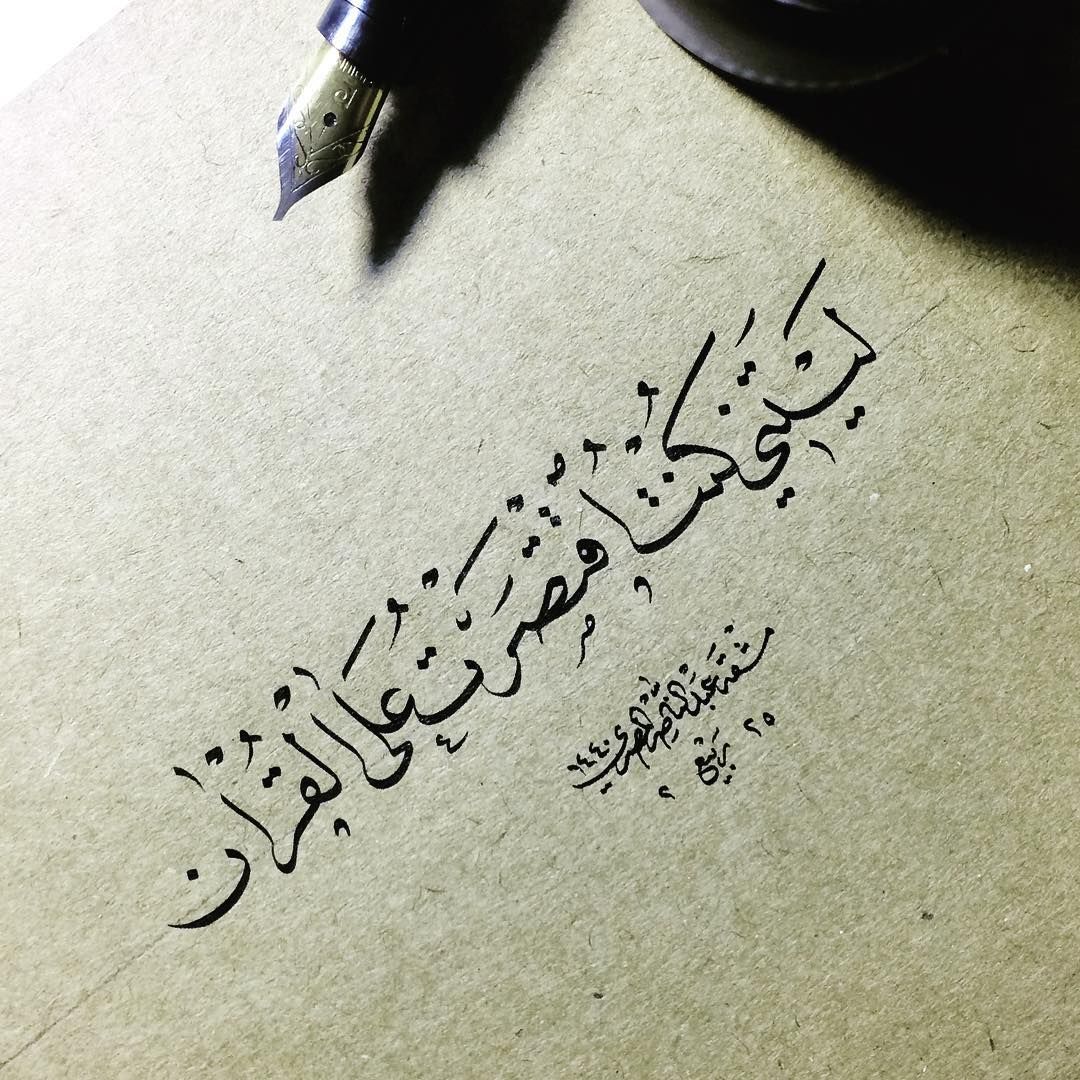 ليتني كنت اقتصرت على القرآن
مشقه عبدالناصر المصري ١٤٤٠
٢٥ ربيع ٢